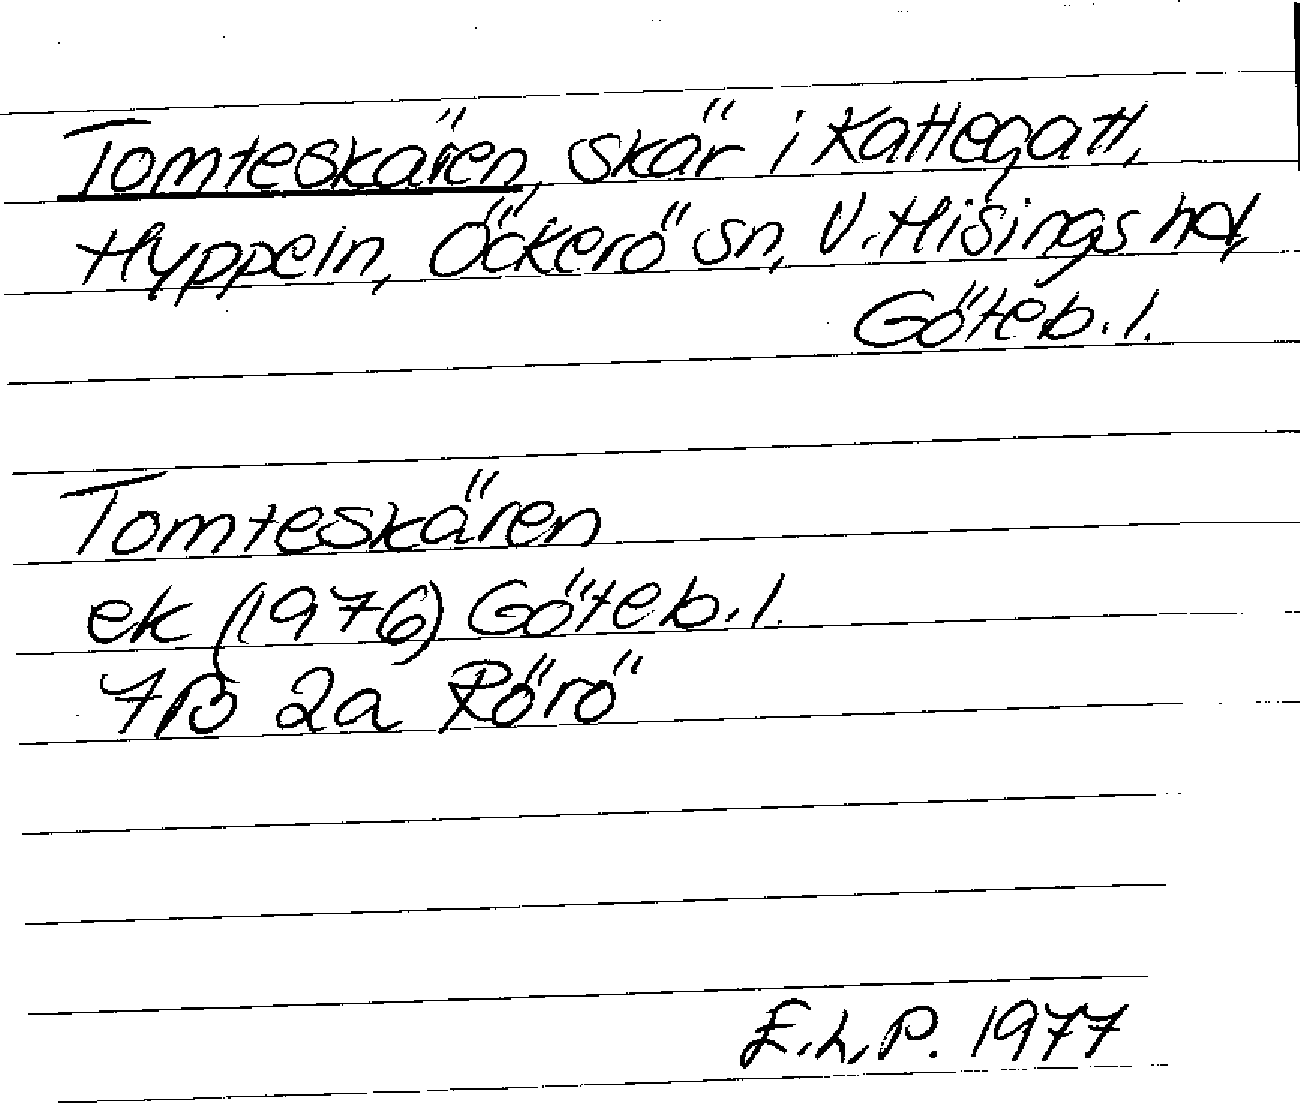 Tomteskären, skär i Kattegatt,
Hyppeln, Öckerö sn, V. Hisings hd,
Göteb. l.
Tomteskären
ek (1976) Göteb. l.
7B 2a Rörö
E.L.P. 1977